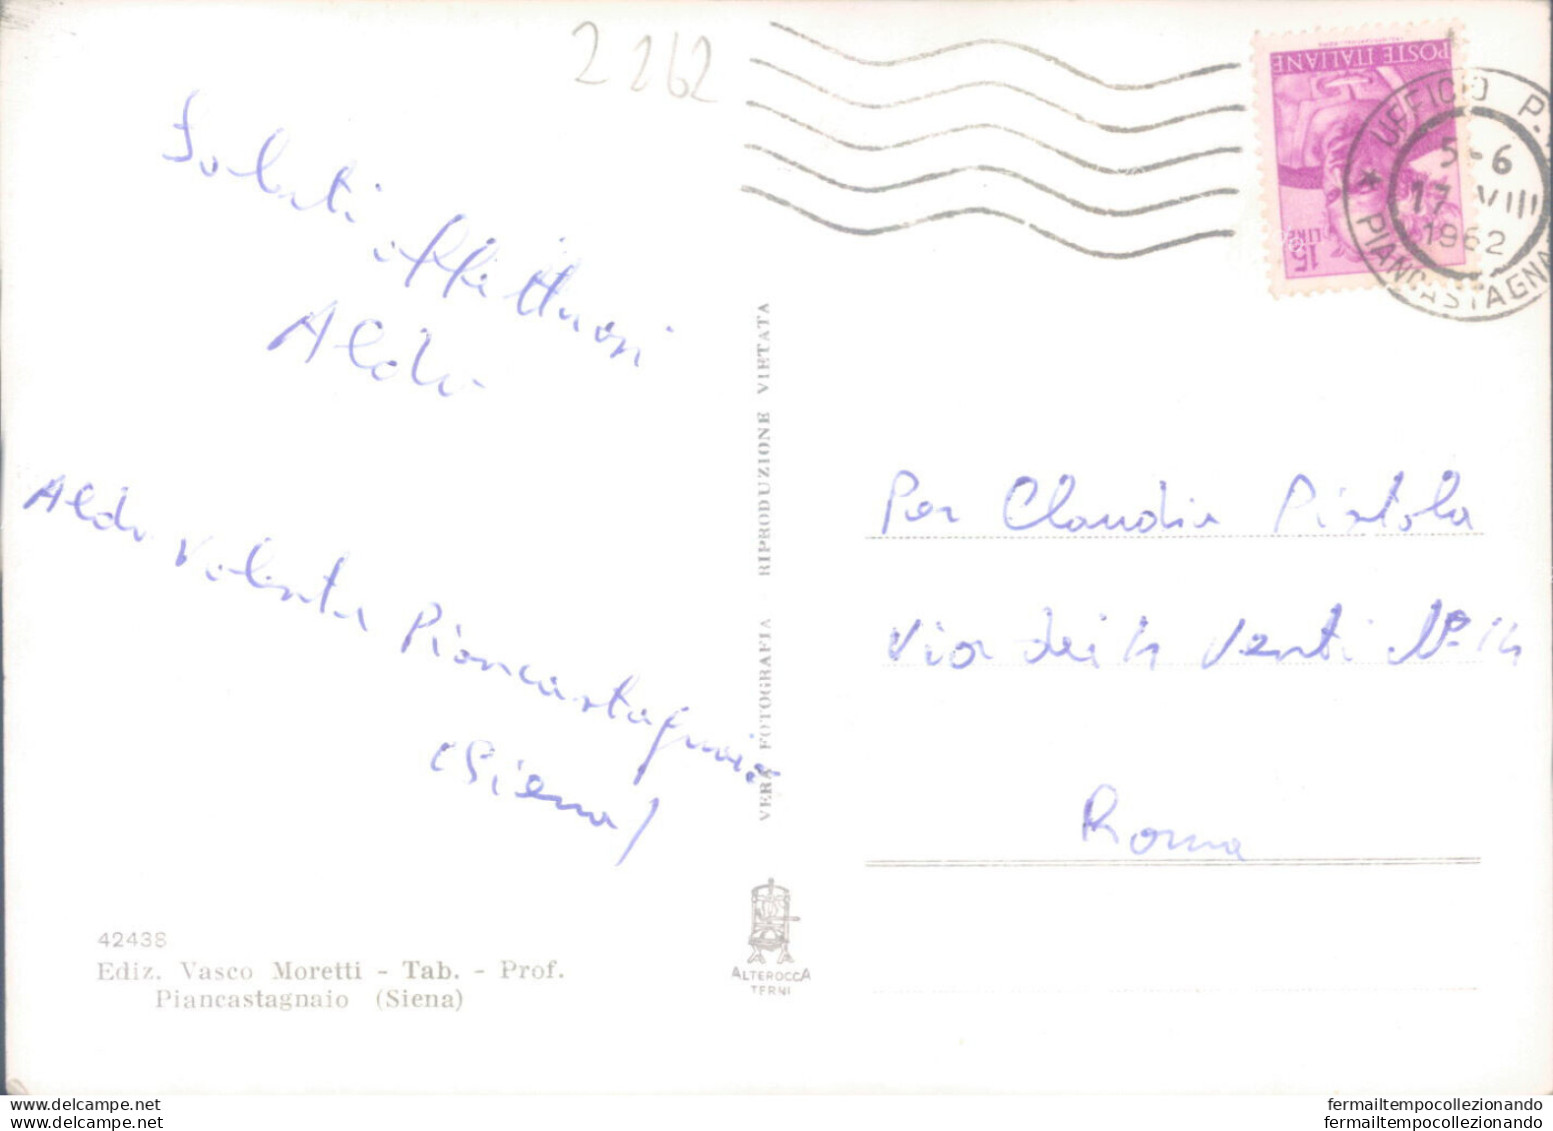 2262
POSTE ITALIANE
15
LIRE
UFFICIO P.
5-6
17 VIII
1962
PIANCASTAGNA
Saluti
affettuosi
Aldo
Aldo
Piancastagnaio
(Siena)
VERA FOTOGRAFIA RIPRODUZIONE VIETATA
Per Claudio Pistola
Via dei 4 Venti N° 14
Roma
42438
Ediz. Vasco Moretti - Tab. - Prof.
Piancastagnaio (Siena)
ALTEROCCA
TERNI
delcampe.net
delcampe.net
fermailtempocollezionando
fermailtempocollezionando